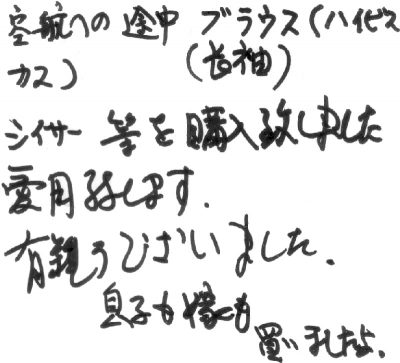 空航への途中 ブラウス(ハイビス
カス) (長袖)
シイサー 等を購入致しました
愛用致します.
有難うございました.
息子も嫁も
買いましたよ.